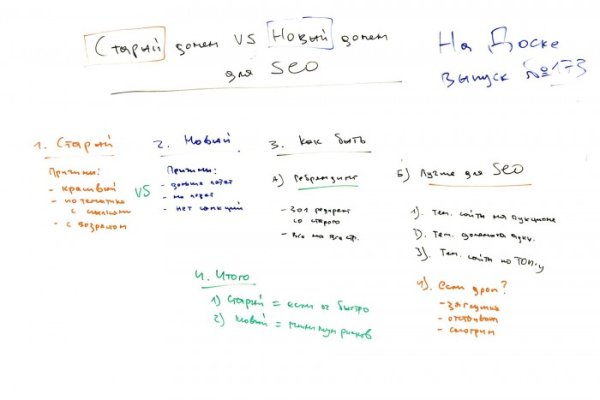 Старый домен VS Новый домен
для SEO
На Доске
Выпуск №173
1. Старый
Причины:
- красивый
- по тематике
с ссылками
- с возрастом
VS
2. Новый
Причины:
- дольше
- не
- нет санкций
3. Как быть
А) Ребрендинг
- 301 редирект
со старого
- Все на все стр.
Б) Лучше для SEO
1). Тем. сайты на аукционе
2). Тем. домены аукц.
3). Тем. сайты по ТОП-у
4). Если дроп?
- заглушка
- отстоять
- смотрим
4. Итого
1) Старый = если оч быстро
2) Новый = минимум рисков